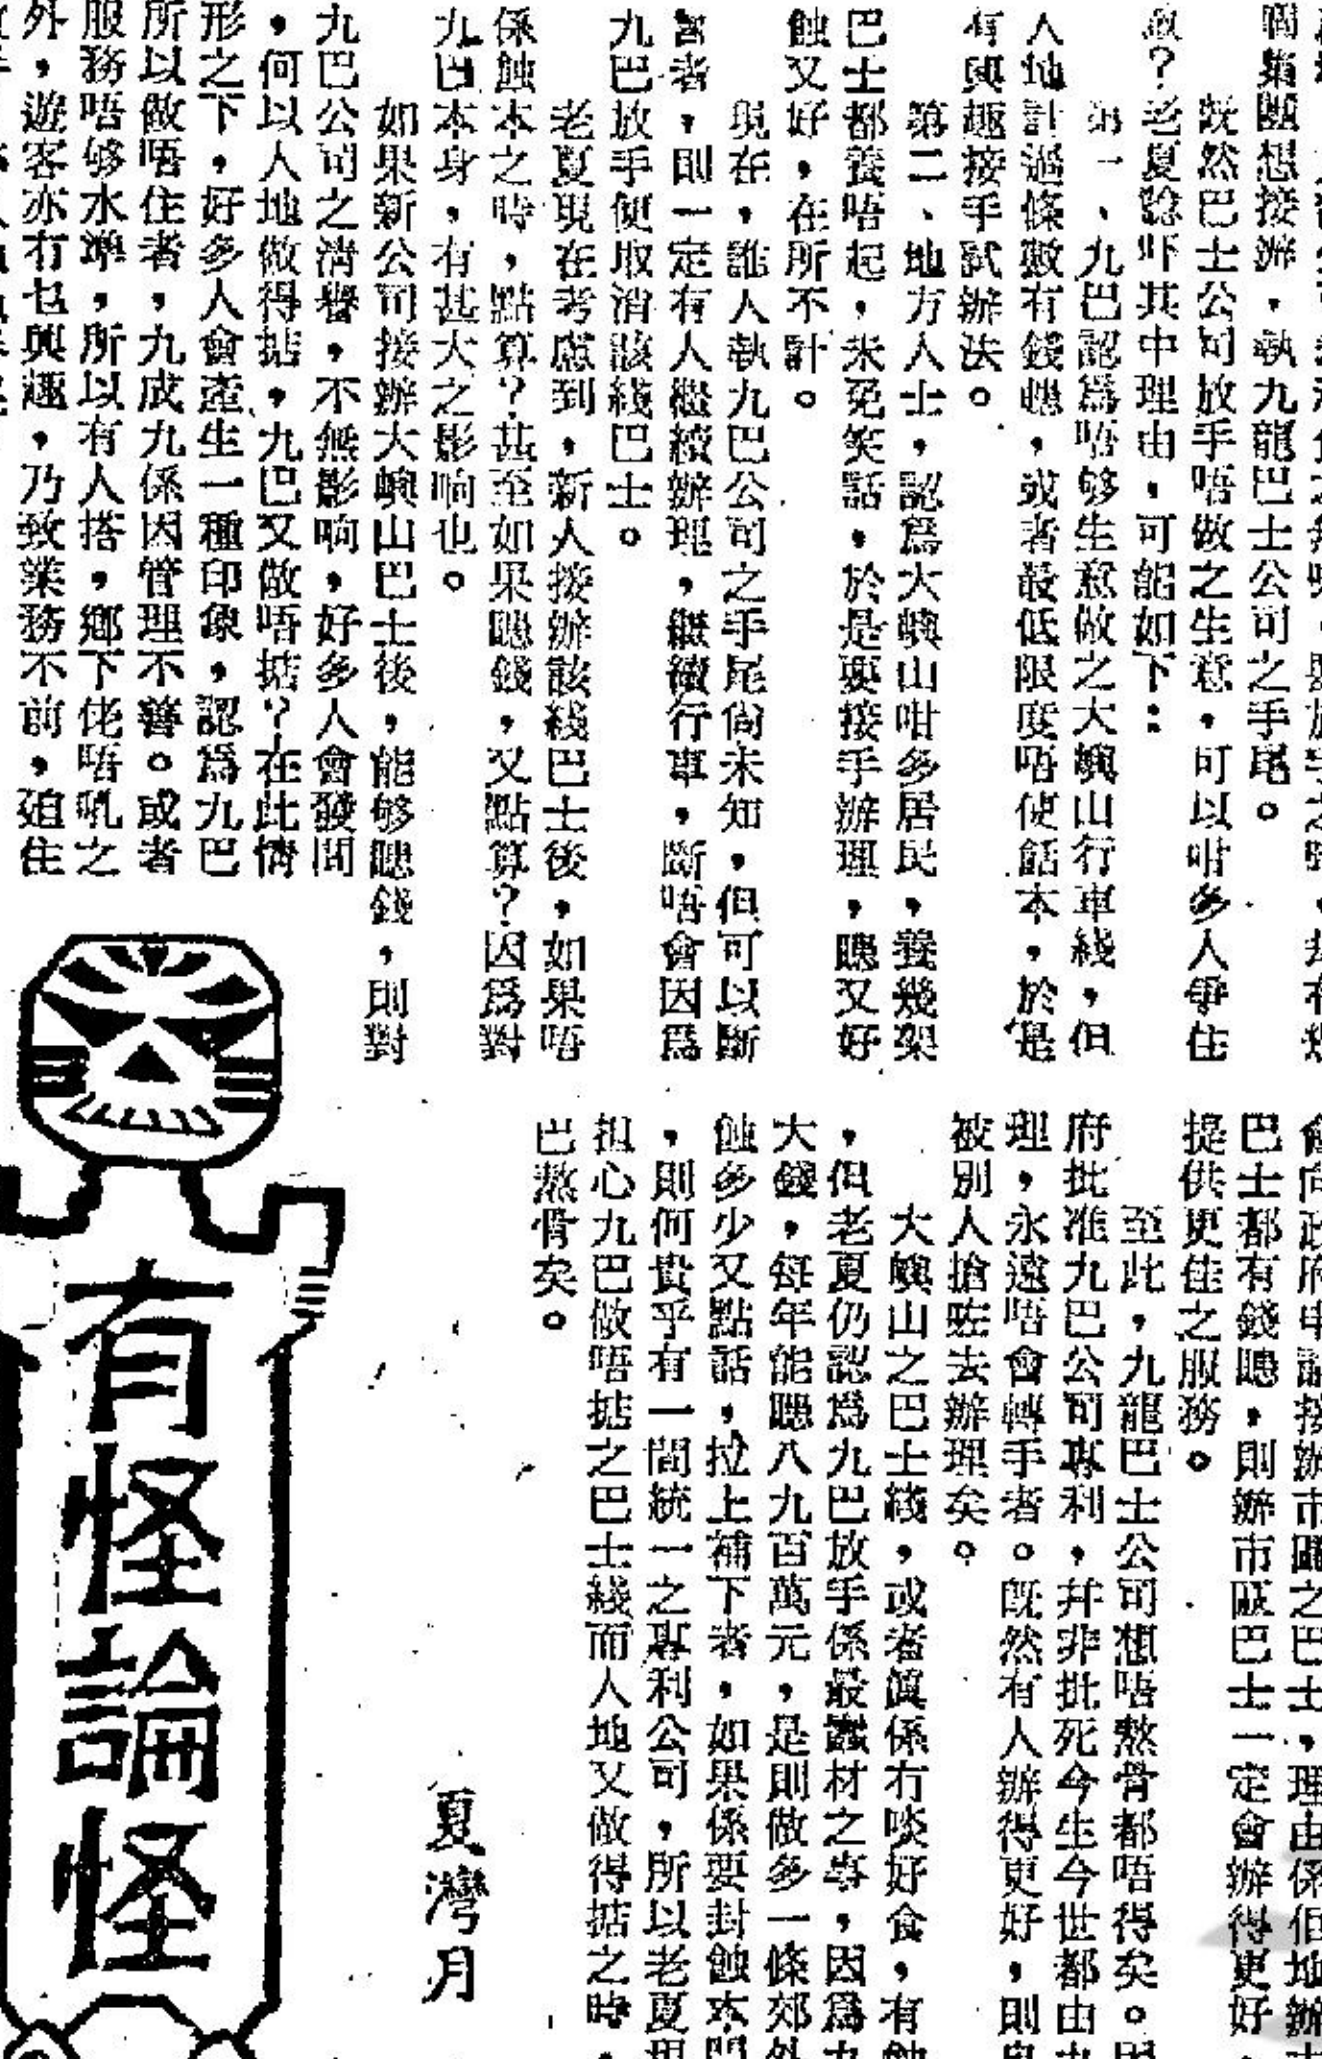 個集團想接辦，執九龍巴士公司之手尾。
既然巴士公司放手唔做之生意，可以咁多人爭住
？老夏諗吓其中理由，可能如下：
第一、九巴認爲唔够生意做之大嶼山行車綫，但
人地計過條數有錢賺，或者最低限度唔使蝕本，於是
有興趣接手試辦法。
第二、地方人士，認爲大嶼山咁多居民，養幾架
巴士都養唔起，未免笑話，於是要接手辦理，賺又好
蝕又好，在所不計。
現在，誰人執九巴公司之手尾尙未知，但可以斷
言者，則一定有人繼續辦理，繼續行車，斷唔會因爲
九巴放手便取消該綫巴士。
老夏現在考慮到，新人接辦該綫巴士後，如果唔
係蝕本之時，點算？甚至如果賺錢，又點算？因爲對
九巴本身，有甚大之影响也。
如果新公司接辦大嶼山巴士後，能够賺錢，則對
九巴公司之淸譽，不無影响，好多人會發問
，何以人地做得掂，九巴又做唔掂？在此情
形之下，好多人會產生一種印象，認爲九巴
所以做唔住者，九成九係因管理不善。或者
服務唔够水準，所以有人搭，鄉下佬唔吼之
外，遊客亦冇乜興趣，乃致業務不前，廹住
巴士都有錢賺，則辦市區巴士一定會辦得更好，
提供更佳之服務。
至此，九龍巴士公司想唔熬骨都唔得矣。因
府批准九巴公司專利，幷非批死今生今世都由九
理，永遠唔會轉手者。旣然有人辦得更好，則
被別人搶咗去辦理矣。
大嶼山之巴士綫，或者眞係冇啖好食，有蝕
，但老夏仍認爲九巴放手係最蠢材之事，因爲九
大錢，每年能賺八九百萬元，是則做多一條郊外
蝕多少又點話，拉上補下者，如果係要封蝕本門
，則何貴乎有一間統一之專利公司，所以老夏現
担心九巴做唔掂之巴士綫而人地又做得掂之時，
巴熬骨矣。
夏灣月
有怪論怪